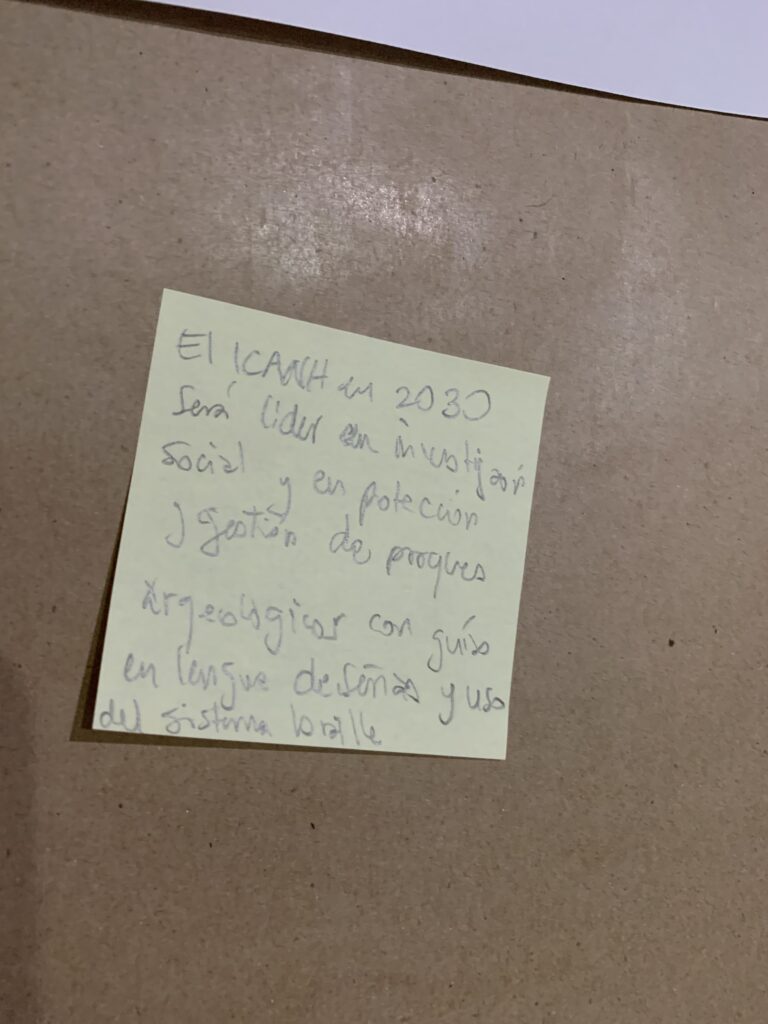 El ICANH en 2030
será lider en investigaón
social y en potección
y gestión de parques
arqeologicos con guías
en lengua de señas y uso
del sistema braille